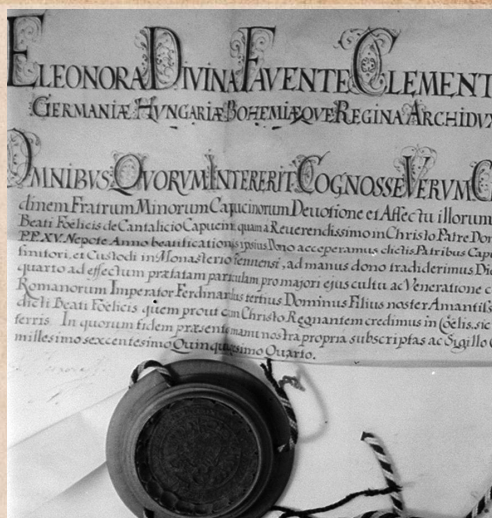 ELEONORA DIVINA FAVENTE CLEMENT
GERMANIÆ HVNGARIÆ BOHEMIÆQVE REGINA ARCHIDVX
OMNIBVS QVORVM INTERERIT COGNOSSE VERVM C
dinem Fratrum Minorum Capucinorum Devotione et Affectu illorum
Beati Fœlicis de Cantalicio Capucini, quam a Reuerendissimo in Christo Patre Dom
P.P. XV. Nepote Anno beatificationis ipsius Dono acceperamus dictis Patribus Capu
finitori, et Custodi in Monasterio ad manus dono tradiderimus Die
quarto ad effectum præfatam particulam pro majori ejus cultu ac Veneratione c
Romanorum Imperator Ferdinandus tertius Dominus Filius noster Amantiss
dicti Beati Fœlicis quem prout cum Christo Regnantem credimus in Cœlis, sic
terris. In quorum fidem præsentes manu nostra propria subscriptas ac Sigillo
millesimo sexcentesimo Quinquagesimo Quarto.